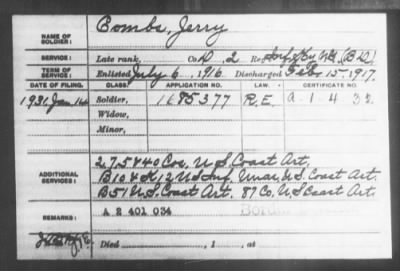 NAME OF SOLDIER: Combs, Jerry
SERVICE: Late rank, Co. D, 2 Reg't Inf. Ky. N.G. (B.W.)
TERM OF SERVICE: Enlisted July 6, 1916. Discharged Feb. 15, 1917.
DATE OF FILING. CLASS. APPLICATION NO. LAW. CERTIFICATE NO.
1931 Jan 14 Soldier, 1685377 R.E. A 1 4 3
Widow,
Minor,
ADDITIONAL SERVICES: 2, 7, 5 & 40 Cos. U S Coast Art.
B 10 & K 12 U S Inf. Unas. U.S. Coast Art.
B 51 U.S. Coast Art. 87 Co. U.S Coast Art.
REMARKS: A 2 401 034
Died , 1 , at